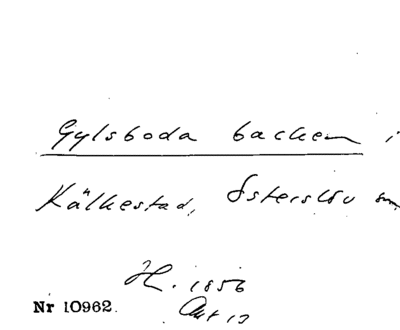 Gylsboda backen i
Kälkestad, Österslöv sn,
H. 1856
Nr 10962.